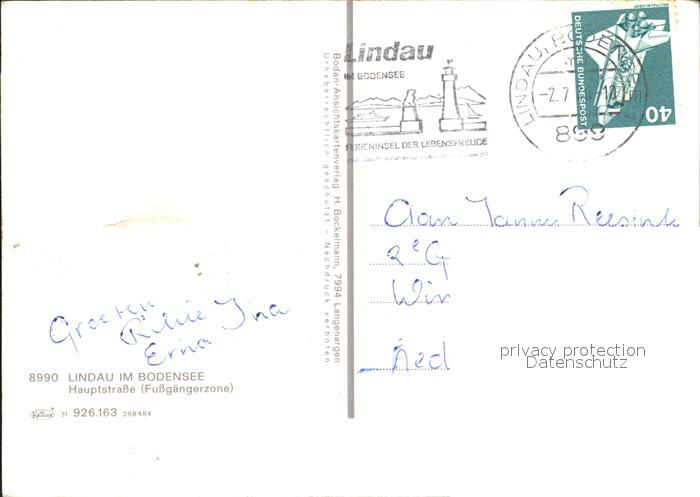 Lindau
IM BODENSEE
FERIENINSEL DER LEBENSFREUDE
LINDAU, BODENSEE
-2.7
899
DEUTSCHE BUNDESPOST
40
Bodan-Ansichtskartenverlag H. Bockelmann, 7994 Langenargen
Urheberrechtlich geschützt - Nachdruck verboten
Aan Reesink
2e G
Win
Ned
privacy protection
Datenschutz
Groeten
Ina
Erna
8990 LINDAU IM BODENSEE
Hauptstraße (Fußgängerzone)
31 926.163 268484